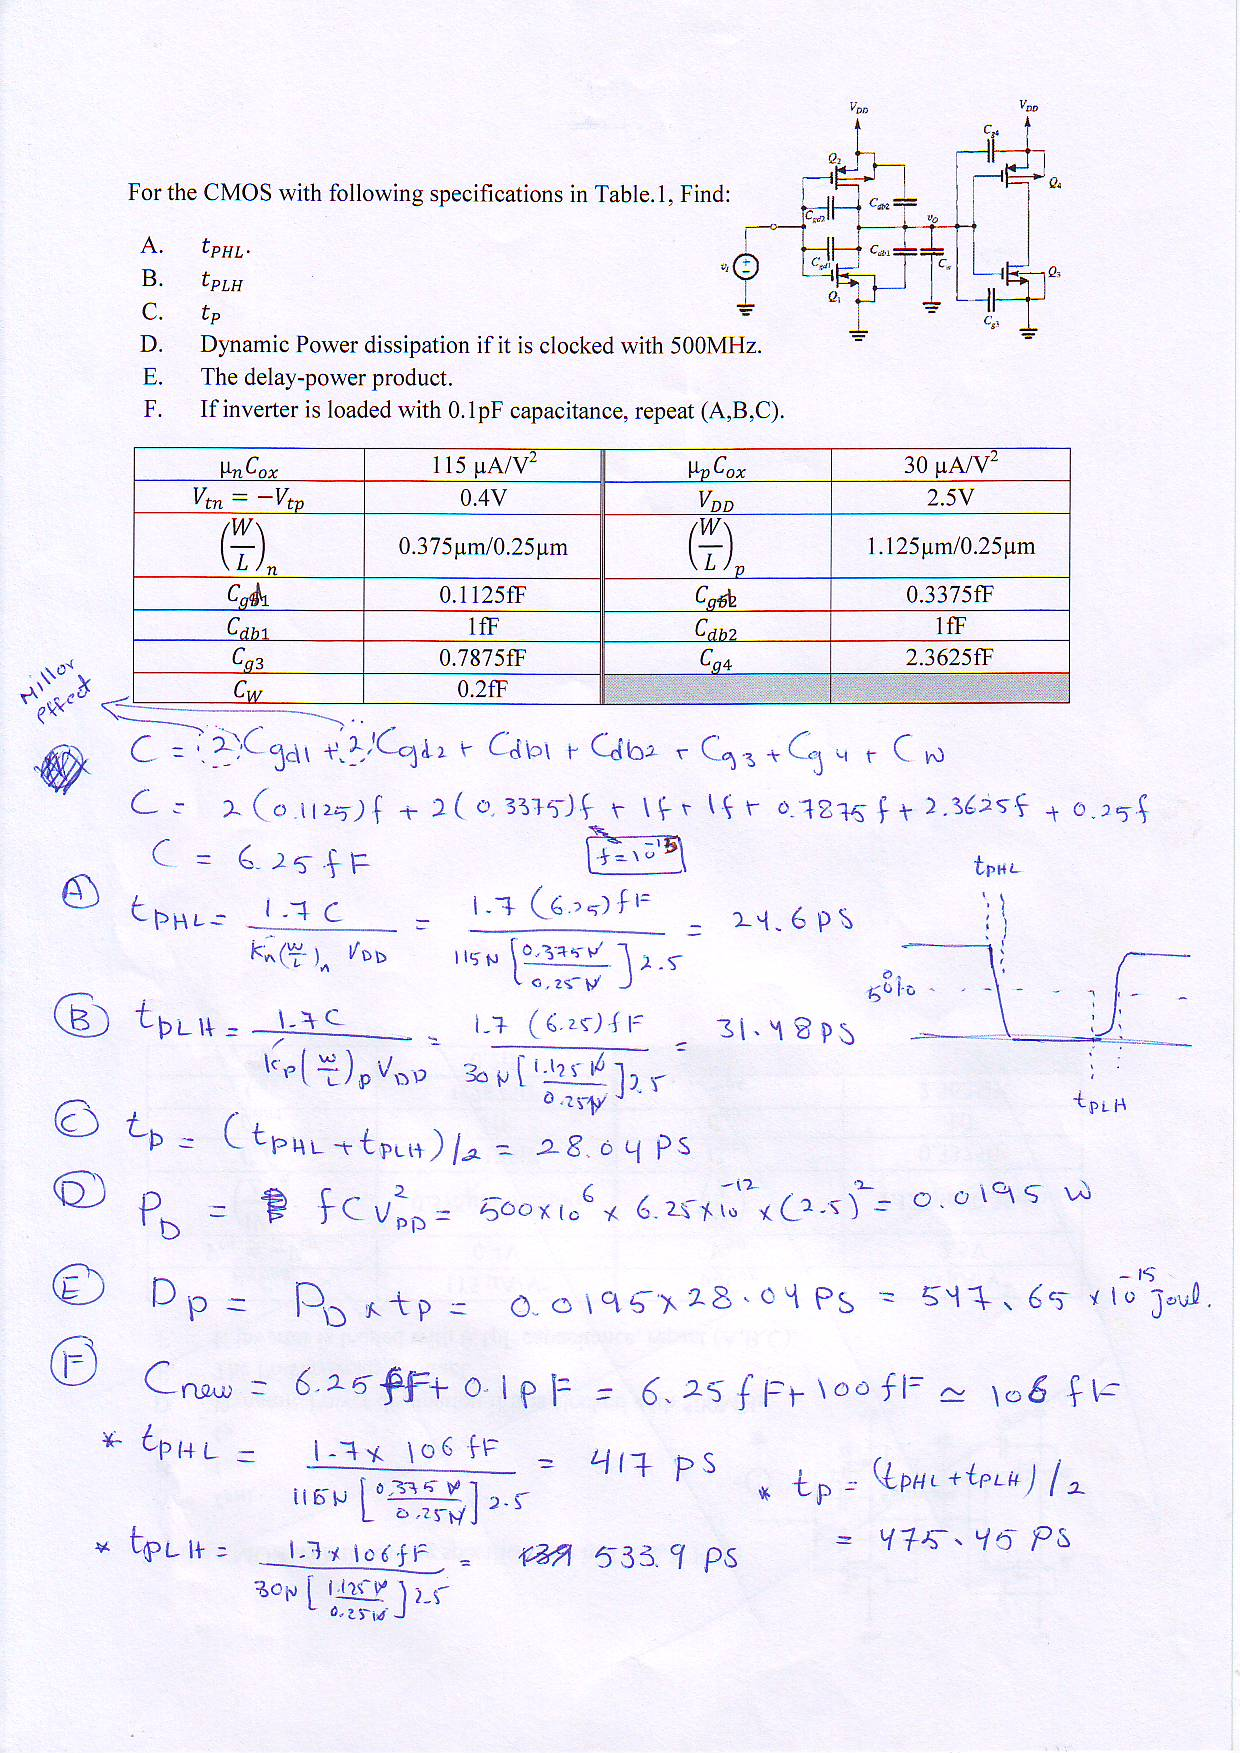 V_DD V_DD
C_g4
Q_2
Q_4
For the CMOS with following specifications in Table.1, Find:
C_gd2 C_db2 v_O
A. t_PHL.
C_gd1 C_db1 C_w
v_I
Q_3
B. t_PLH
Q_1
C. t_P
C_g3
D. Dynamic Power dissipation if it is clocked with 500MHz.
E. The delay-power product.
F. If inverter is loaded with 0.1pF capacitance, repeat (A,B,C).
μ_nC_ox 115 μA/V² μ_pC_ox 30 μA/V²
V_tn = −V_tp 0.4V V_DD 2.5V
(W/L)_n 0.375μm/0.25μm (W/L)_p 1.125μm/0.25μm
C_gd1 0.1125fF C_gd2 0.3375fF
C_db1 1fF C_db2 1fF
C_g3 0.7875fF C_g4 2.3625fF
C_W 0.2fF
Millor effect
C = 2 Cgd1 + 2 Cgd2 + Cdb1 + Cdb2 + Cg3 + Cg4 + Cw
C = 2(0.1125)f + 2(0.3375)f + 1f + 1f + 0.7875f + 2.3625f + 0.25f
C = 6.25 fF f=10^-15
A) t_PHL = 1.7 C / k'n(W/L)n V_DD = 1.7 (6.25)fF / 115μ [0.375μ/0.25μ] 2.5 = 24.6 ps
t_PHL
50%
B) t_PLH = 1.7C / k'p(W/L)p V_DD = 1.7 (6.25)fF / 30μ [1.125μ/0.25μ] 2.5 = 31.48 ps
t_PLH
C) t_p = (t_PHL + t_PLH)/2 = 28.04 ps
D) P_D = f C V_DD² = 500x10^6 x 6.25x10^-12 x (2.5)² = 0.0195 W
E) Dp = P_D x tp = 0.0195 x 28.04 ps = 547.65 x 10^-15 joul.
F) Cnew = 6.25 fF + 0.1 pF = 6.25 fF + 100 fF ≃ 106 fF
* t_PHL = 1.7x 106 fF / 115μ [0.375μ/0.25μ] 2.5 = 417 ps
* t_p = (t_PHL + t_PLH)/2
= 475.45 ps
* t_PLH = 1.7x 106fF / 30μ [1.125μ/0.25μ] 2.5 = 533.9 ps